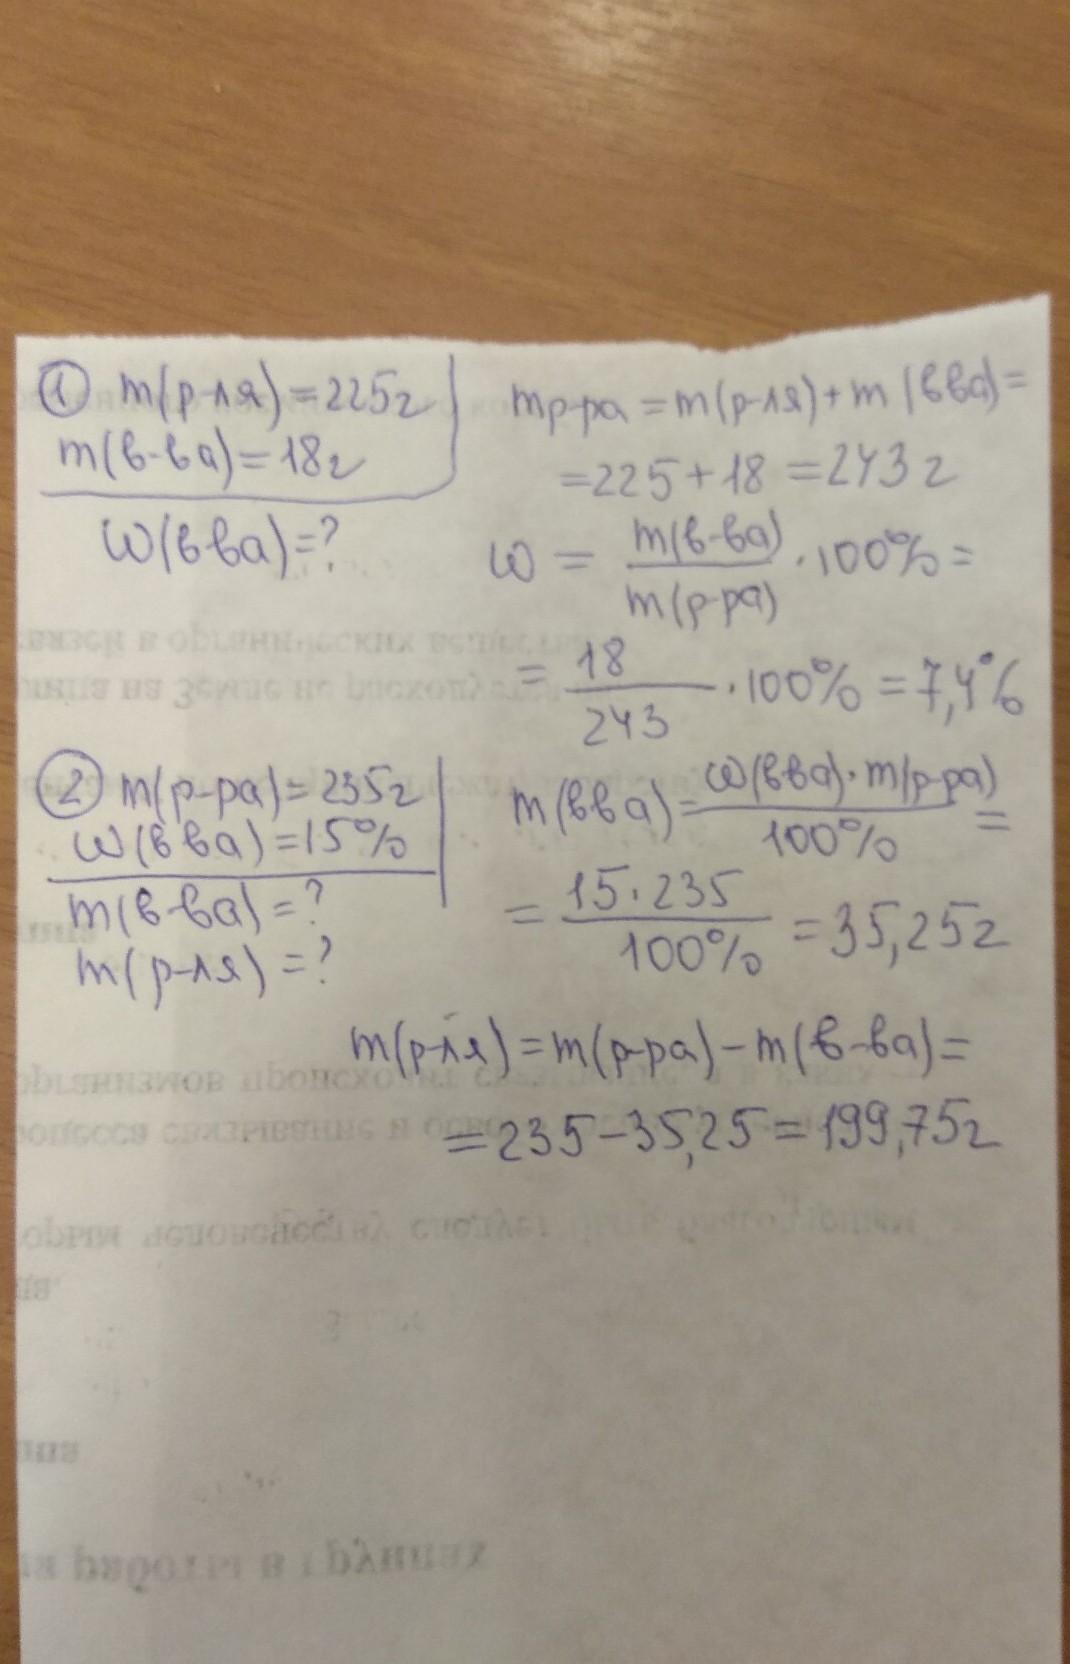 ① m(р-ля)=225г
m(в-ва)=18г
W(вва)=?
mр-ра=m(р-ля)+m(вва)=
=225+18=243г
W = m(в-ва)/m(р-ра) · 100% =
= 18/243 · 100% = 7,4%
② m(р-ра)=235г
W(вва)=15%
m(в-ва)=?
m(р-ля)=?
m(вва)= W(вва)·m(р-ра)/100% =
= 15·235/100% = 35,25г
m(р-ля)=m(р-ра)-m(в-ва)=
=235-35,25=199,75г